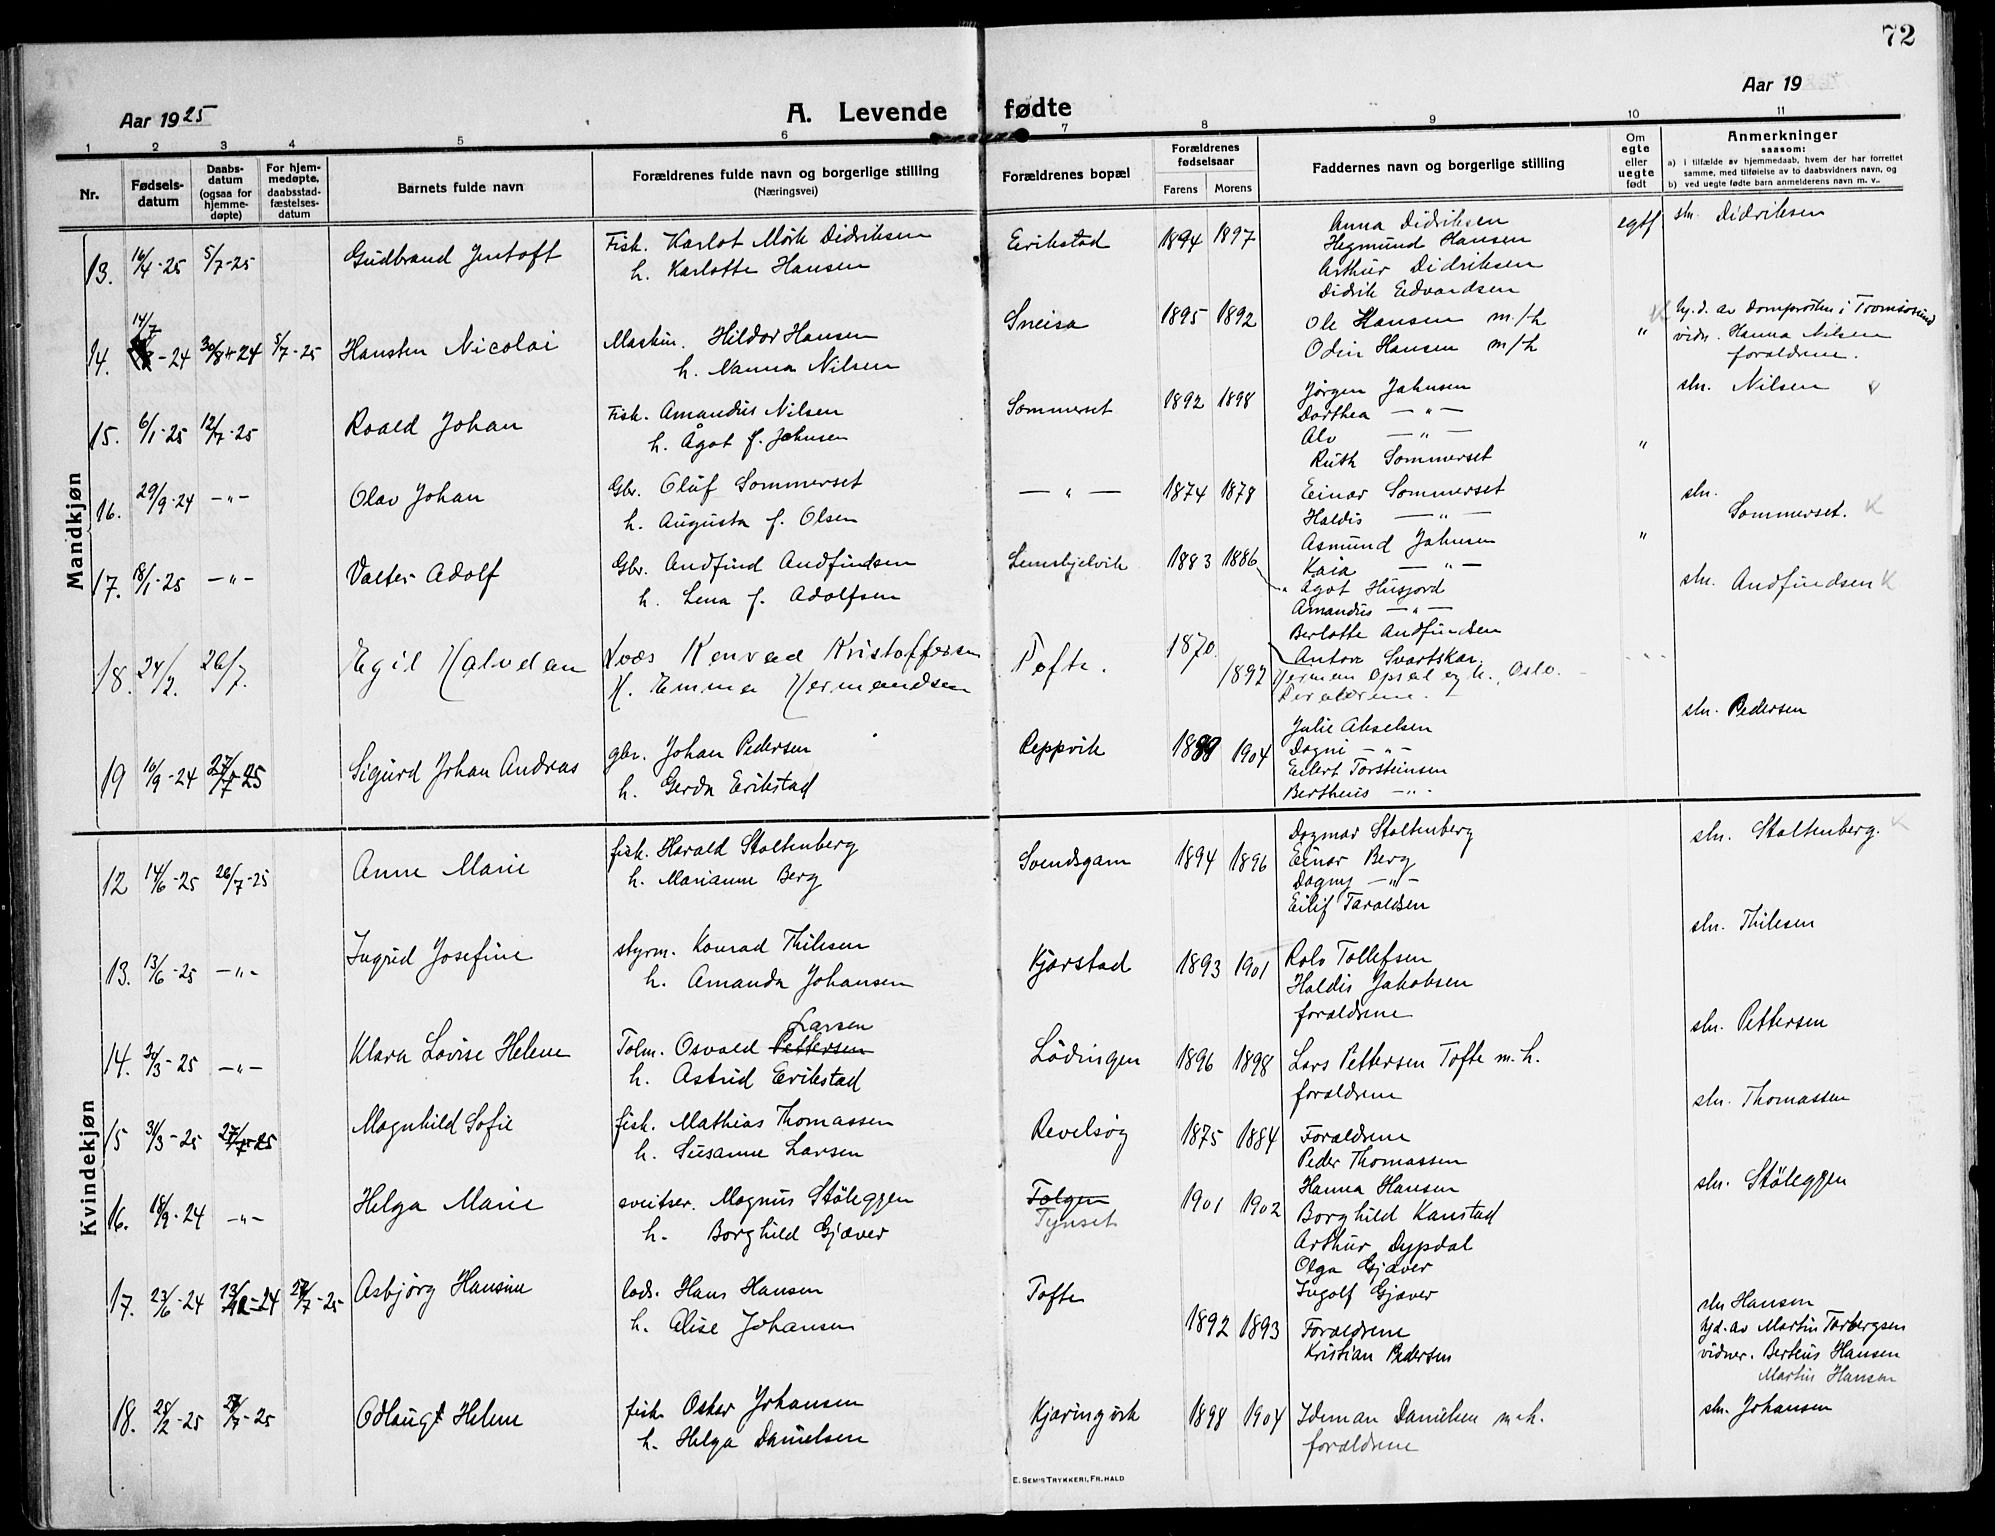 72
Aar 1925
A. Levende fødte
Aar 19
1 2 3 4 5 6 7 8 9 10 11
Nr.
Fødsels-
datum
Daabs-
datum
(ogsaa for
hjemme-
døpte)
For hjem-
medøpte,
daabsstad-
fæstelses-
datum
Barnets fulde navn
Forældrenes fulde navn og borgerlige stilling
(Næringsvei)
Forældrenes bopæl
Forældrenes
fødselsaar
Farens Morens
Faddernes navn og borgerlige stilling
Om
egte
eller
uegte
født
Anmerkninger
saasom:
a) i tilfælde av hjemmedaab, hvem der har forrettet
samme, med tilføielse av to daabsvidners navn, og
b) ved uegte fødte barn anmelderens navn m. v.
Mandkjøn
13. 16/4-25 5/7-25 Gudbrand Jentoft
Fisk. Karlot Mörk Didriksen
h. Karlotte Hansen
Erikstad 1894 1897
Anna Didriksen
Hegmund Hansen
Arthur Didriksen
Didrik Edvardsen
sln. Didriksen
14. 14/7 -24 30/8-24 5/7-25 Hansten Nicolai
Maskin. Hildor Hansen
h. Nanna Nilsen
Sneisa 1895 1892
Ole Hansen m/h
Odin Hansen m/h
"
hj. d. av domprosten i Tromsösund
vidn. Hanna Nilsen
foraldrene.
15. 6/1-25 12/7-25 Roald Johan
Fisk. Amandus Nilsen
h. Ågot f. Johnsen
Sommerset 1892 1898
Jörgen Johnsen
Dorthea — " —
Alv — " —
Ruth Sommerset
"
sln. Nilsen
16. 29/9-24 — " — Olav Johan
Gbr. Oluf Sommerset
h. Augusta f. Olsen
— " — 1874 1878
Einar Sommerset
Haldis — " —
Asmund Johnsen
Kaia — " —
"
sln.
Sommerset. K
17. 18/1-25 — " — Valter Adolf
Gbr. Andfind Andfindsen
h. Lena f. Adolfsen
1883 1886
Agot Husjord
Amandus — " —
Berlotte Andfindsen
Anton Svartskar
sln. Andfindsen K
18. 24/2. 26/7. Egil Halvdan
Konrad Kristoffersen
H. Emma Hermandsen
Tofte. 1870. 1892
Herman Opsal og h., Oslo.
sln. Pedersen
19 10/9-24 27/7-25 Sigurd Johan Andras
gbr. Johan Pedersen
h. Gerda Erikstad
Reppvik 1904
Julie Akselsen
Dagni — " —
Eilert Torsteinsen
Bertheus — " —
Kvindekjøn
12 14/6-25 26/7-25 Anne Marie
fisk. Harald Stoltenberg
h. Marianne Berg
Svendsgam 1894 1896
Dagmar Stoltenberg
Einar Berg
Dagny — " —
Eilif Taraldsen
sln. Stoltenberg. K
13. 13/6-25 — " — Ingrid Josefine
styrm. Konrad Thilesen
h. Amanda Johansen
Kjörstad 1893 1901
Rolv Tollefsen
Haldis Jakobsen
foraldrene
sln. Thilesen
14. 30/3-25 — " — Klara Lovise Helene
Larsen
Tolm. Osvald Pettersen
h. Astrid Erikstad
Lödingen 1896 1898
Lars Pettersen Tofte m. h.
foraldrene
sln. Pettersen
15 31/3-25 27/7-25 Magnhild Sofie
fisk. Mathias Thomassen
h. Susanne Larsen
Revelsög 1875 1884
Foraldrene
Peder Thomassen
sln. Thomassen
16. 18/9-24 — " — Helga Marie
sveitser. Magnus Stöleggen
h. Borghild Gjæver
Tolgen
Tynset
1901 1902
Hanna Hansen
Borghild Kanstad
Arthur Dypdal
Olga Gjæver
Ingolf Gjæver
sln. Stöleggen
17. 23/6-24 13/12-24 27/7-25 Asbjörg Hansine
lods. Hans Hansen
h. Alise Johansen
Tofte 1892 1893
Foraldrene
Kristian Pedersen
sln Hansen
hjd. av Martin Torbergsen
vidner. Berteus Hansen
Martin Hansen
18. 25/2-25 27/7-25 Odlaugt Helene
fisk Oskar Johansen
h. Helga Danielsen
Kjaringvik 1898 1904
Ideman Danielsen m. h.
foraldrene
sln. Johansen
E. SEM'S TRYKKERI, FR. HALD